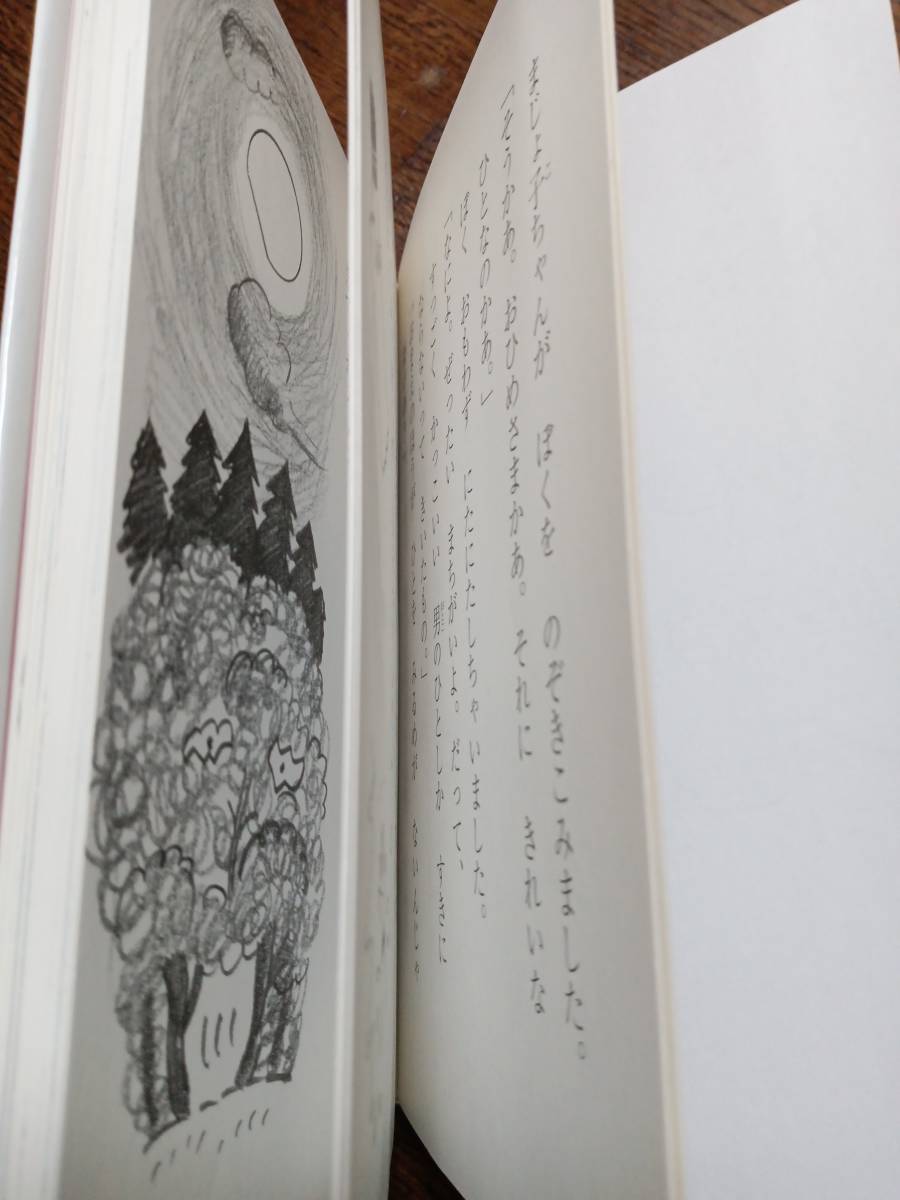 まじょ子ちゃんが ぼくを のぞきこみました。
「そうかあ。おひめさまかあ。それに きれいな
ひとなのかあ。」
ぼく おもわず にたにたしちゃいました。
「なによ。ぜったい まちがいよ。だって、
すっごく かっこいい 男のひとしか すきに
ならないって きいたもの。」